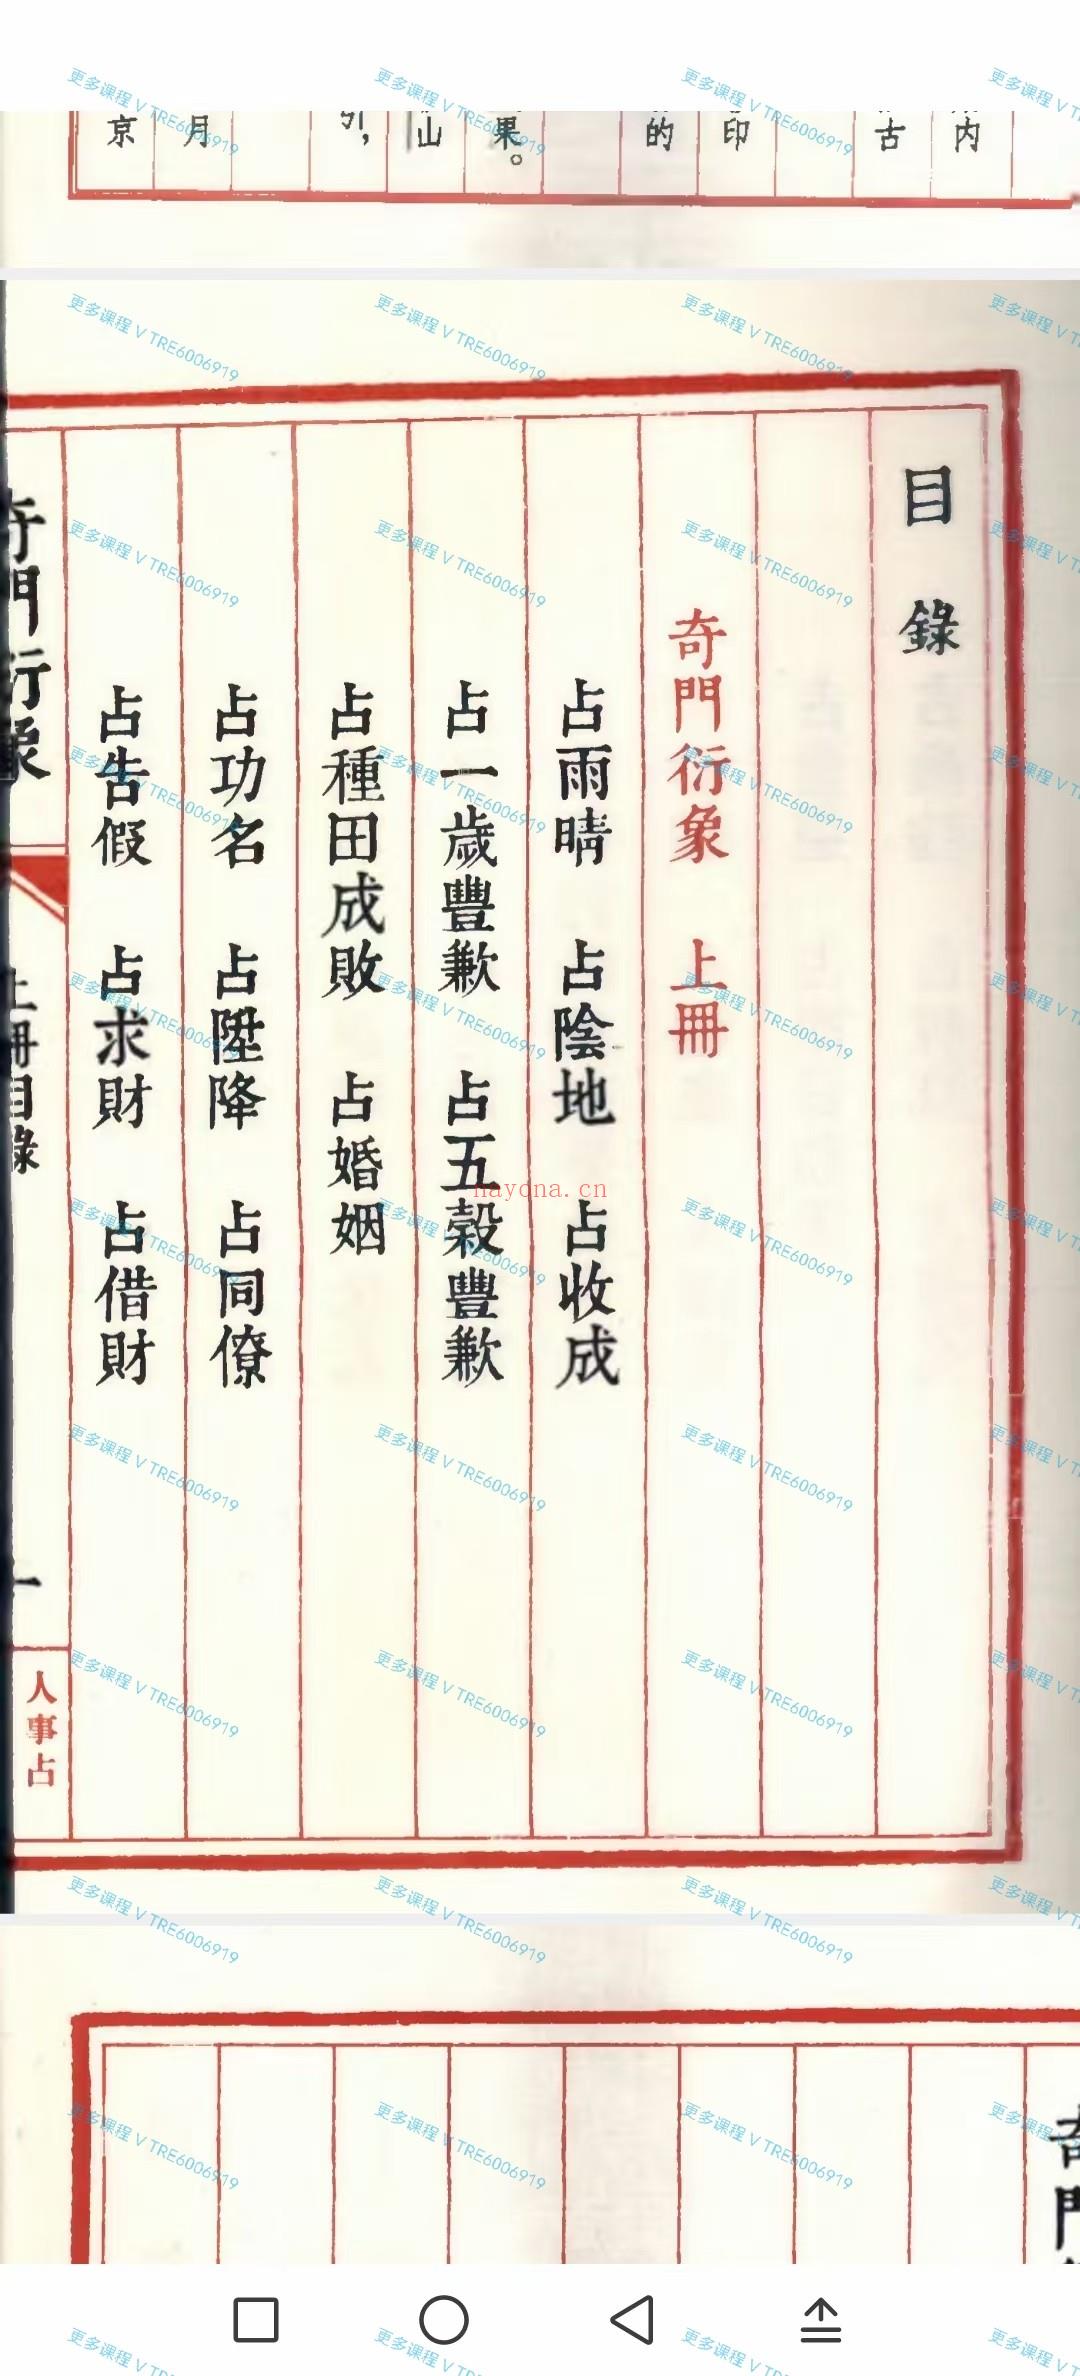 内
古
印
的
果。
山
引，
月
京
目錄
奇門衍象 上冊
占雨晴 占陰地 占收成
占一歲豐歉 占五榖豐歉
占種田成敗 占婚姻
占功名 占陞降 占同僚
占告假 占求財 占借財
奇門衍象 上冊目錄 一
人事占
奇門
nayona.cn
更多课程 V TRE6006919